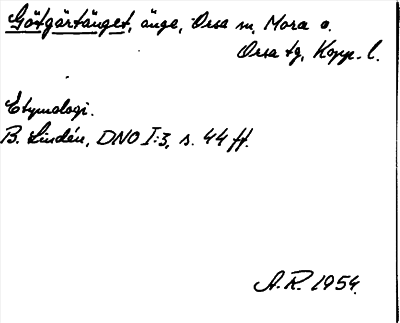 Götgärtänget, änge, Orsa sn, Mora o.
Orsa tg, Kopp. l.
Etymologi.
B. Lindén, DNO I:3, s. 44 ff.
A.R. 1954.